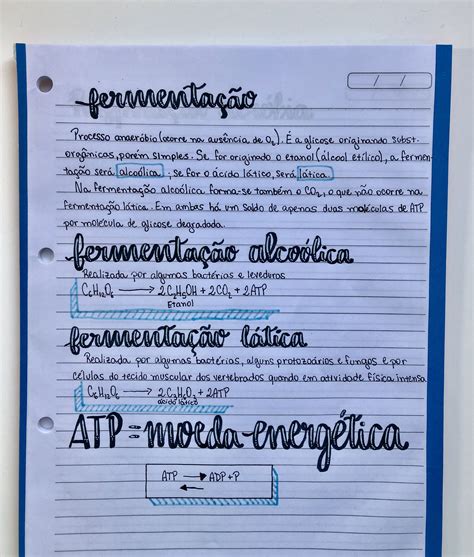 fermentação
/ /
Processo anaeróbio (ocorre na ausência de O₂). É a glicose originando subst.
orgânicas, porém simples. Se for originado o etanol (álcool etílico), a fermen-
tação será alcoólica; se for o ácido lático, será lática.
Na fermentação alcoólica forma-se também o CO₂, o que não ocorre na
fermentação lática. Em ambas há um saldo de apenas duas moléculas de ATP
por molécula de glicose degradada.
fermentação alcoólica
Realizada por algumas bactérias e leveduras
C₆H₁₂O₆ → 2C₂H₅OH + 2CO₂ + 2ATP
Etanol
fermentação lática
Realizada por algumas bactérias, alguns protozoários e fungos e por
células do tecido muscular dos vertebrados quando em atividade física intensa
C₆H₁₂O₆ → 2C₃H₆O₃ + 2ATP
ácido lático
ATP = moeda energética
ATP ⇄ ADP + P